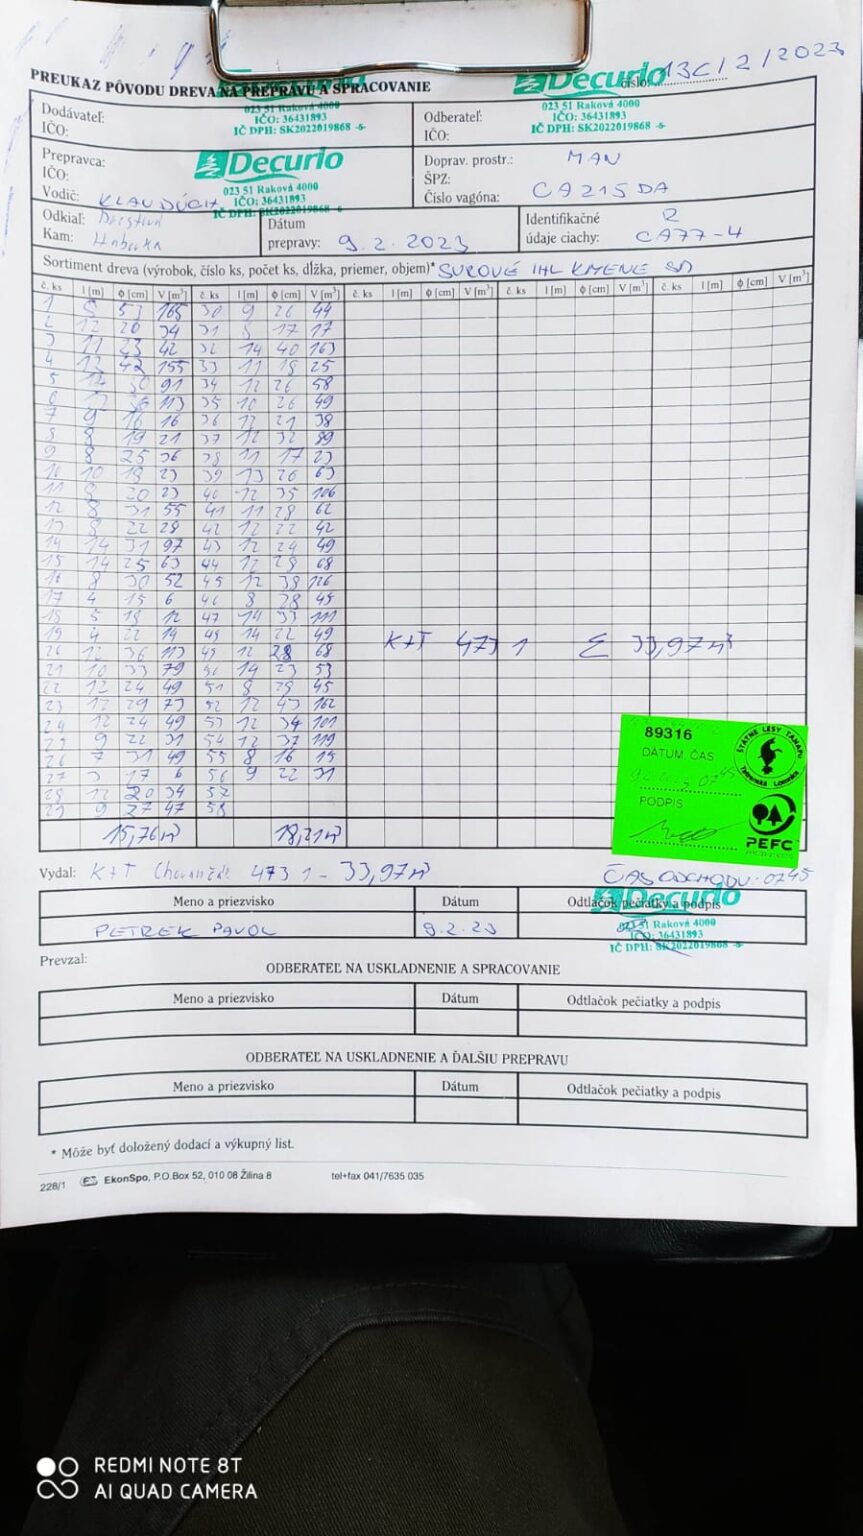 PREUKAZ PÔVODU DREVA NA PREPRAVU A SPRACOVANIE
Decurio číslo: 13C/2/2023
Dodávateľ:
IČO:
023 51 Raková 4000
IČO: 36431893
IČ DPH: SK2022019868 -5-
Odberateľ:
IČO:
023 51 Raková 4000
IČO: 36431893
IČ DPH: SK2022019868 -5-
Prepravca:
IČO:
Vodič: KLAUDÚCH
Decurio
023 51 Raková 4000
IČO: 36431893
IČ DPH: SK2022019868
Doprav. prostr.: MAN
ŠPZ:
Číslo vagóna: CA215DA
Odkiaľ:
Kam:
Dátum
prepravy: 9.2.2023
Identifikačné R
údaje ciachy: CA77-4
Sortiment dreva (výrobok, číslo ks, počet ks, dĺžka, priemer, objem)* SUROVÉ IHL KMENE
č. ks l [m] ϕ [cm] V [m³] č. ks l [m] ϕ [cm] V [m³] č. ks l [m] ϕ [cm] V [m³] č. ks l [m] ϕ [cm] V [m³] č. ks l [m] ϕ [cm] V [m³]
1 53 165 30 9 26 44
2 12 20 34 31 5 17 17
3 11 23 42 32 14 40 163
4 12 42 155 33 11 18 25
5 12 30 91 34 12 26 58
6 113 35 10 26 49
7 9 16 16 36 12 21 38
8 8 19 21 37 12 32 89
9 8 25 36 38 11 17 23
10 10 18 23 39 13 26 63
11 8 20 23 40 12 35 106
12 8 31 55 41 11 28 62
13 8 22 28 42 12 22 42
14 14 31 97 43 12 24 49
15 14 25 63 44 12 28 68
16 8 30 52 45 12 38 126
17 4 15 6 46 8 28 45
18 5 18 12 47 14 33 111
19 4 22 14 48 14 22 49
20 12 36 113 49 12 28 68
K+T 473 1 Σ 33,97 m³
21 10 33 79 50 14 23 53
22 12 24 49 51 8 29 45
23 12 29 73 52 12 43 162
24 12 24 49 53 12 34 101
25 9 22 31 54 12 37 119
26 7 31 49 55 8 16 15
27 3 17 6 56 9 22 31
28 12 20 34 57
29 9 27 47 58
15,76 m³ 18,21 m³
89316
DÁTUM ČAS
PODPIS
ŠTÁTNE LESY TANAPU
Tatranská Lomnica
PEFC
Vydal: K+T 473 1 - 33,97 m³
ČAS ODCHODU: 0745
Meno a priezvisko Dátum Odtlačok pečiatky a podpis
PETREK PAVOL 9.2.23
Decurio
023 51 Raková 4000
IČO: 36431893
IČ DPH: SK2022019868 -5-
Prevzal:
ODBERATEĽ NA USKLADNENIE A SPRACOVANIE
Meno a priezvisko Dátum Odtlačok pečiatky a podpis
ODBERATEĽ NA USKLADNENIE A ĎALŠIU PREPRAVU
Meno a priezvisko Dátum Odtlačok pečiatky a podpis
* Môže byť doložený dodací a výkupný list.
228/1 EkonSpo, P.O.Box 52, 010 08 Žilina 8 tel+fax 041/7635 035
REDMI NOTE 8T
AI QUAD CAMERA